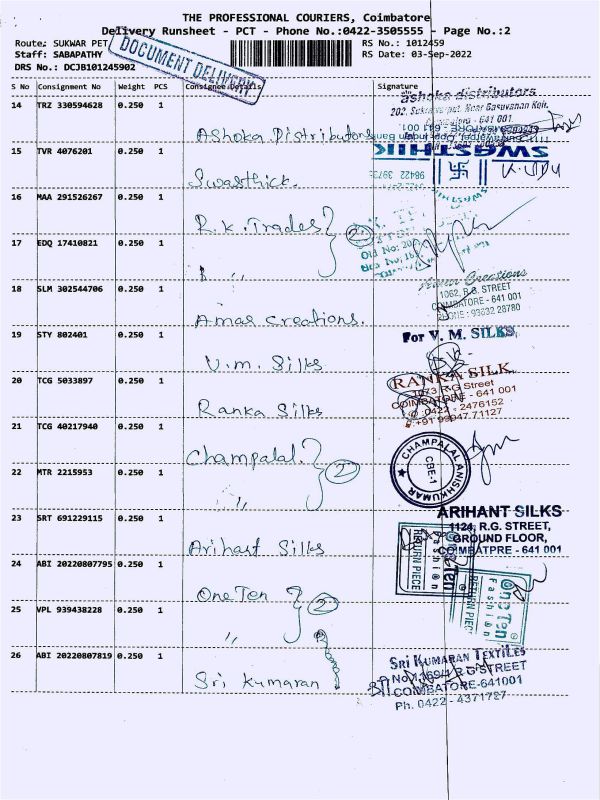 THE PROFESSIONAL COURIERS, Coimbatore
Delivery Runsheet - PCT - Phone No.:0422-3505555 - Page No.:2
Route: SUKWAR PET
RS No.: 1012459
Staff: SABAPATHY
RS Date: 03-Sep-2022
DRS No.: DCJB101245902
DOCUMENT DELIVERY
S No Consignment No Weight PCS Consignee Details Signature
14 TRZ 330594628 0.250 1
Ashoka Distributors
ashoka distributors
15 TVR 4076201 0.250 1
Swasthick.
SWASTHIK
98422 3973
16 MAA 291526267 0.250 1
R.K. Trades 2
17 EDQ 17410821 0.250 1
"
18 SLM 302544706 0.250 1
Amas Creations.
Creations
1062, R.G. STREET
COIMBATORE - 641 001
PHONE : 93632 28780
19 STY 802401 0.250 1
V.m. Silks
For V. M. SILKS
20 TCG 5033897 0.250 1
Ranka Silks
RANKA SILK
1073 R.G Street
COIMBATORE - 641 001
0422 - 2476152
+91 99947 71127
21 TCG 40217940 0.250 1
Champalal. 2
CHAMPALAL ANISHKUMAR
CBE-1
22 MTR 2215953 0.250 1
"
23 SRT 691229115 0.250 1
Arihant Silks
ARIHANT SILKS
1124, R.G. STREET,
GROUND FLOOR,
COIMBATPRE - 641 001
24 ABI 20220807795 0.250 1
One Ten 2
Ten
Fashion
RETURN PIECE
One Ten
Fashion
RETURN PIECE
25 VPL 939438228 0.250 1
"
26 ABI 20220807819 0.250 1
Sri Kumaran
SRI KUMARAN TEXTILES
R.G STREET
COIMBATORE-641001
Ph. 0422 - 4371727